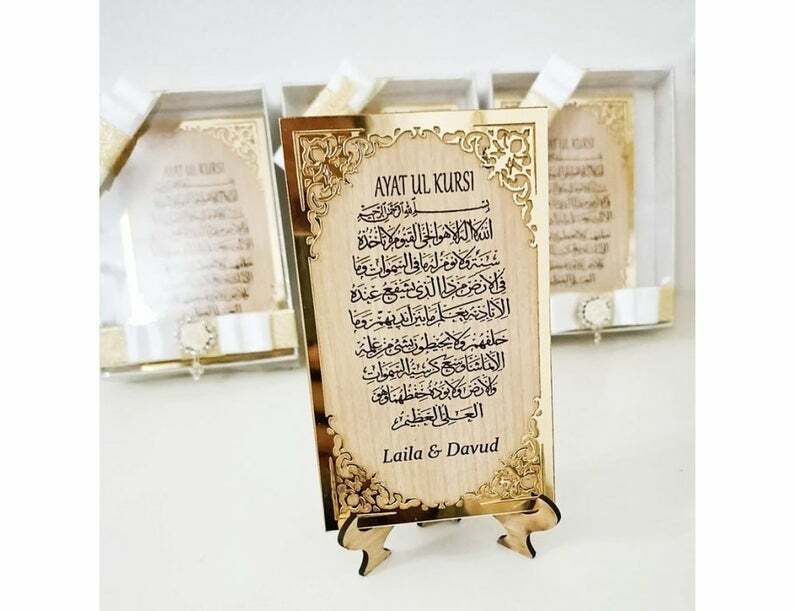 AYAT UL KURSI
بسم الله الرحمن الرحيم
الله لا اله الا هو الحي القيوم لا تاخذه
سنة ولا نوم له ما في السموات وما
في الارض من ذا الذي يشفع عنده
الا باذنه يعلم ما بين ايديهم وما
خلفهم ولا يحيطون بشئ من علمه
الا بما شاء وسع كرسيه السموات
والارض ولا يؤده حفظهما وهو
العلي العظيم
Laila & Davud
AYAT UL KURSI
AYAT UL KURSI